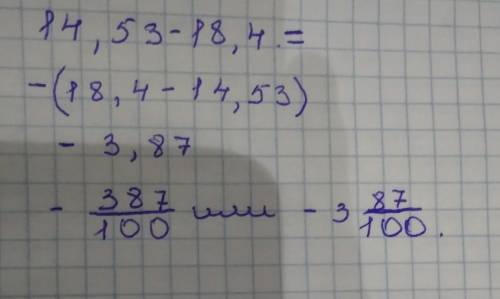 14,53-18,4.=
-(18,4-14,53)
- 3,87
- 387/100 или - 3 87/100.